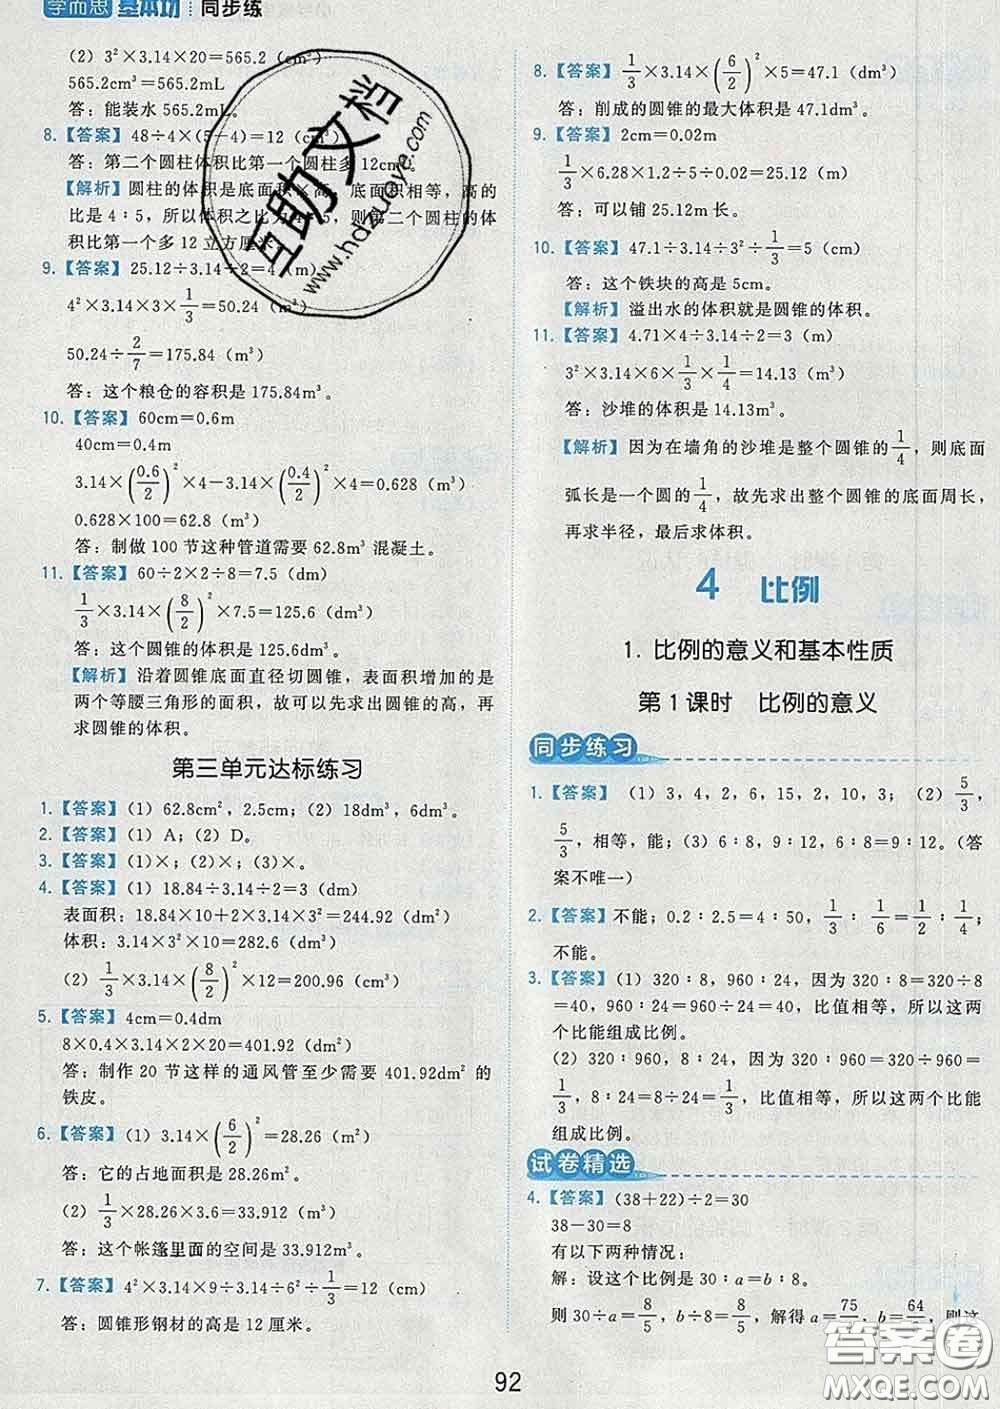 学而思 基本功 同步练
(2) 3²×3.14×20=565.2(cm³)
565.2cm³=565.2mL
答：能装水565.2mL。
8.【答案】48÷4×(5-4)=12(cm³)
答：第二个圆柱体积比第一个圆柱多12cm³。
【解析】圆柱的体积是底面积×高，底面积相等，高的
比是4∶5，所以体积之比为4∶5，则第二个圆柱的体
积比第一个多12立方厘米。
9.【答案】25.12÷3.14÷2=4(m)
4²×3.14×3×1/3=50.24(m³)
50.24÷2/7=175.84(m³)
答：这个粮仓的容积是175.84m³。
10.【答案】60cm=0.6m
40cm=0.4m
3.14×(0.6/2)²×4-3.14×(0.4/2)²×4=0.628(m³)
0.628×100=62.8(m³)
答：制做100节这种管道需要62.8m³混凝土。
11.【答案】60÷2×2÷8=7.5(dm)
1/3×3.14×(8/2)²×7.5=125.6(dm³)
答：这个圆锥的体积是125.6dm³。
【解析】沿着圆锥底面直径切圆锥，表面积增加的是
两个等腰三角形的面积，故可以先求出圆锥的高，再求
圆锥的体积。
第三单元达标练习
1.【答案】(1) 62.8cm²，2.5cm；(2) 18dm³，6dm³。
2.【答案】(1) A；(2) D。
3.【答案】(1)×；(2)×；(3)×。
4.【答案】(1) 18.84÷3.14÷2=3(dm)
表面积：18.84×10+2×3.14×3²=244.92(dm²)
体积：3.14×3²×10=282.6(dm³)
(2) 1/3×3.14×(8/2)²×12=200.96(cm³)
5.【答案】4cm=0.4dm
8×0.4×3.14×2×20=401.92(dm²)
答：制作20节这样的通风管至少需要401.92dm²的
铁皮。
6.【答案】(1) 3.14×(6/2)²=28.26(m²)
答：它的占地面积是28.26m²。
(2) 1/3×28.26×3.6=33.912(m³)
答：这个帐篷里面的空间是33.912m³。
7.【答案】4²×3.14×9÷3.14÷6²÷1/3=12(cm)
答：圆锥形钢材的高是12厘米。
8.【答案】1/3×3.14×(6/2)²×5=47.1(dm³)
答：削成的圆锥的最大体积是47.1dm³。
9.【答案】2cm=0.02m
1/3×6.28×1.2÷5÷0.02=25.12(m)
答：可以铺25.12m长。
10.【答案】47.1÷3.14÷3²÷1/3=5(cm)
答：这个铁块的高是5cm。
【解析】溢出水的体积就是圆锥的体积。
11.【答案】4.71×4÷3.14÷2=3(m)
3²×3.14×6×1/3×1/4=14.13(m³)
答：沙堆的体积是14.13m³。
【解析】因为在墙角的沙堆是整个圆锥的1/4，则底面
弧长是一个圆的1/4，故先求出整个圆锥的底面周长，
再求半径，最后求体积。
4 比例
1. 比例的意义和基本性质
第1课时 比例的意义
同步练习
1.【答案】(1) 3，4，2，6，15，2，10，3；(2) 5/3，
5/3，相等，能；(3) 6∶8，9∶12，6∶8=9∶12。(答
案不唯一)
2.【答案】不能；0.2∶2.5=4∶50，1/3∶1/6=1/2∶1/4；
不能。
3.【答案】(1) 320∶8，960∶24，因为320∶8=320÷8
=40，960∶24=960÷24=40，比值相等，所以这两
个比能组成比例。
(2) 320∶960，8∶24，因为320∶960=320÷960
=1/3，8∶24=8÷24=1/3，比值相等，所以这两个比能
组成比例。
试卷精选
4.【答案】(38+22)÷2=30
38-30=8
有以下两种情况；
解：设这个比例是30∶a=b∶8。
则30÷a=8/5，b÷8=8/5，解得a=75/4，b=64/5，则这
92
互助文档
www.hdzuoye.com
答案圈
MXQE.COM